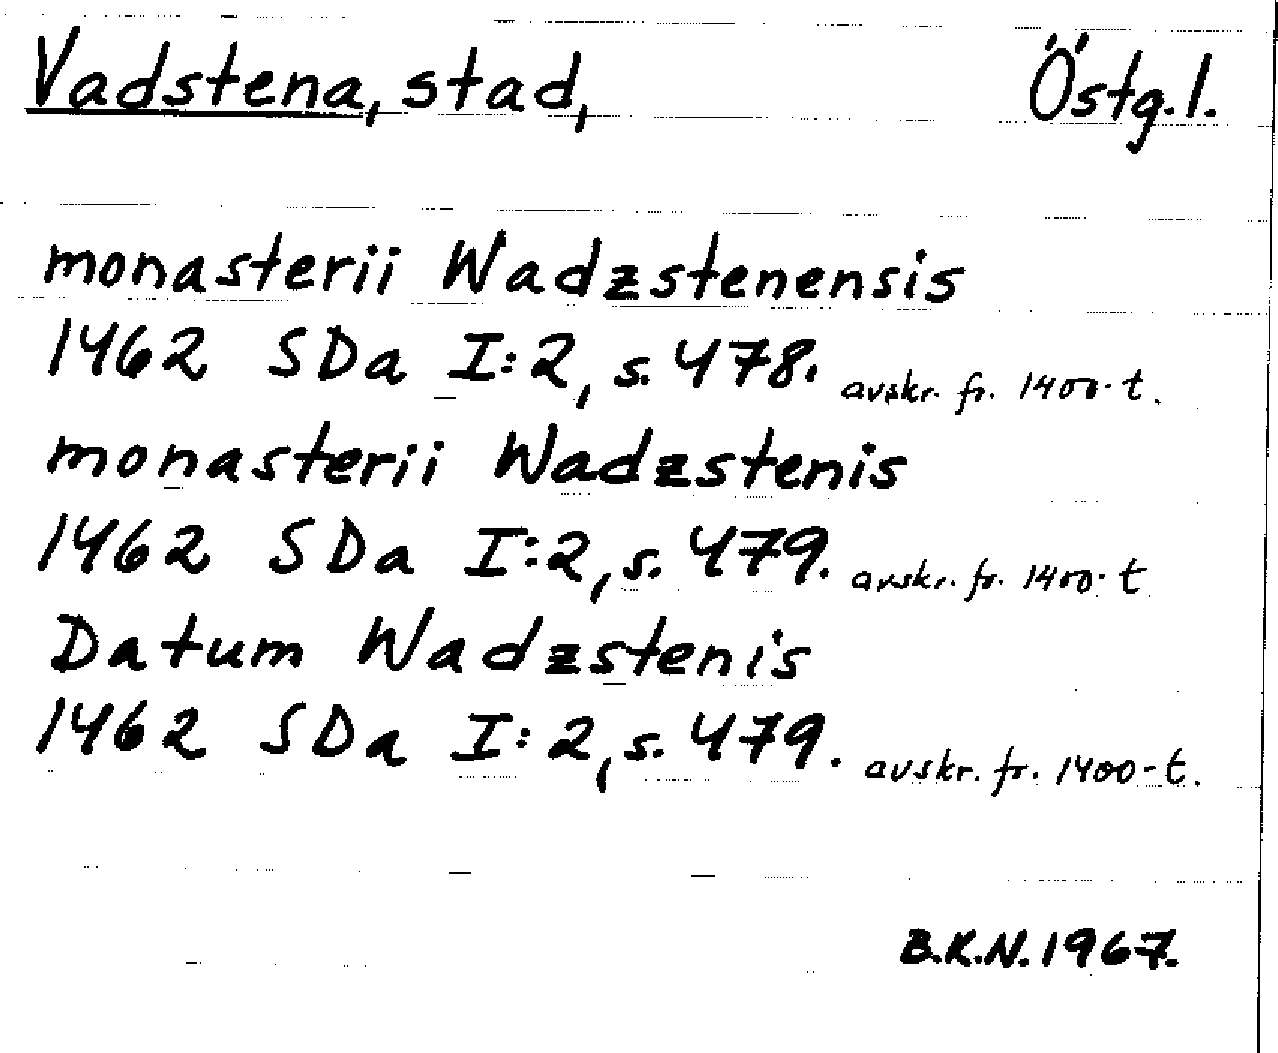 Vadstena, stad, Östg.l.
monasterii Wadzstenensis
1462 SDa I:2, s. 478. avskr. fr. 1400-t.
monasterii Wadzstenis
1462 SDa I:2, s. 479. avskr. fr. 1400-t
Datum Wadzstenis
1462 SDa I:2, s. 479. avskr. fr. 1400-t.
B.K.N. 1967.